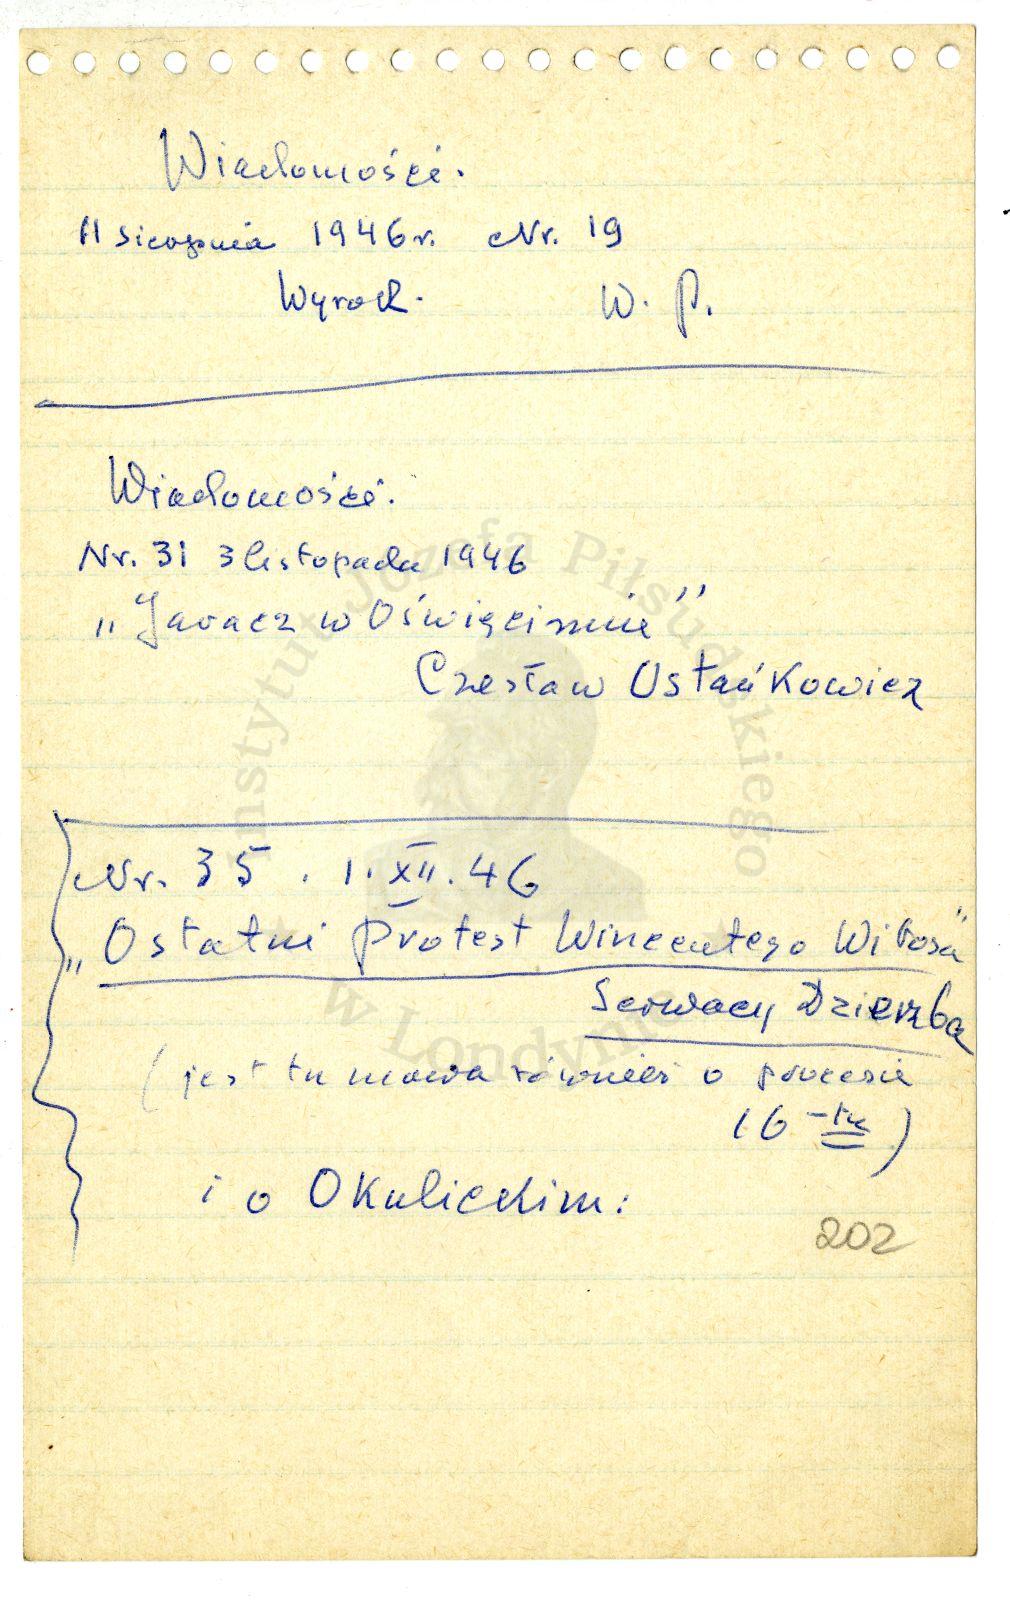 Wiadomości.
11 sierpnia 1946r. Nr. 19
Wyrok. W. P.
Wiadomości.
Nr. 31 3 listopada 1946
„Jaracz w Oświęcimie”
Czesław Ustańkowicz
Nr. 35. 1. XII. 46
„Ostatni Protest Wincentego Witosa”
Serwacy Dzierzba
(jest tu mowa również o procesie
16-tu)
i o Okulickim.
202
Instytut Józefa Piłsudskiego
w Londynie